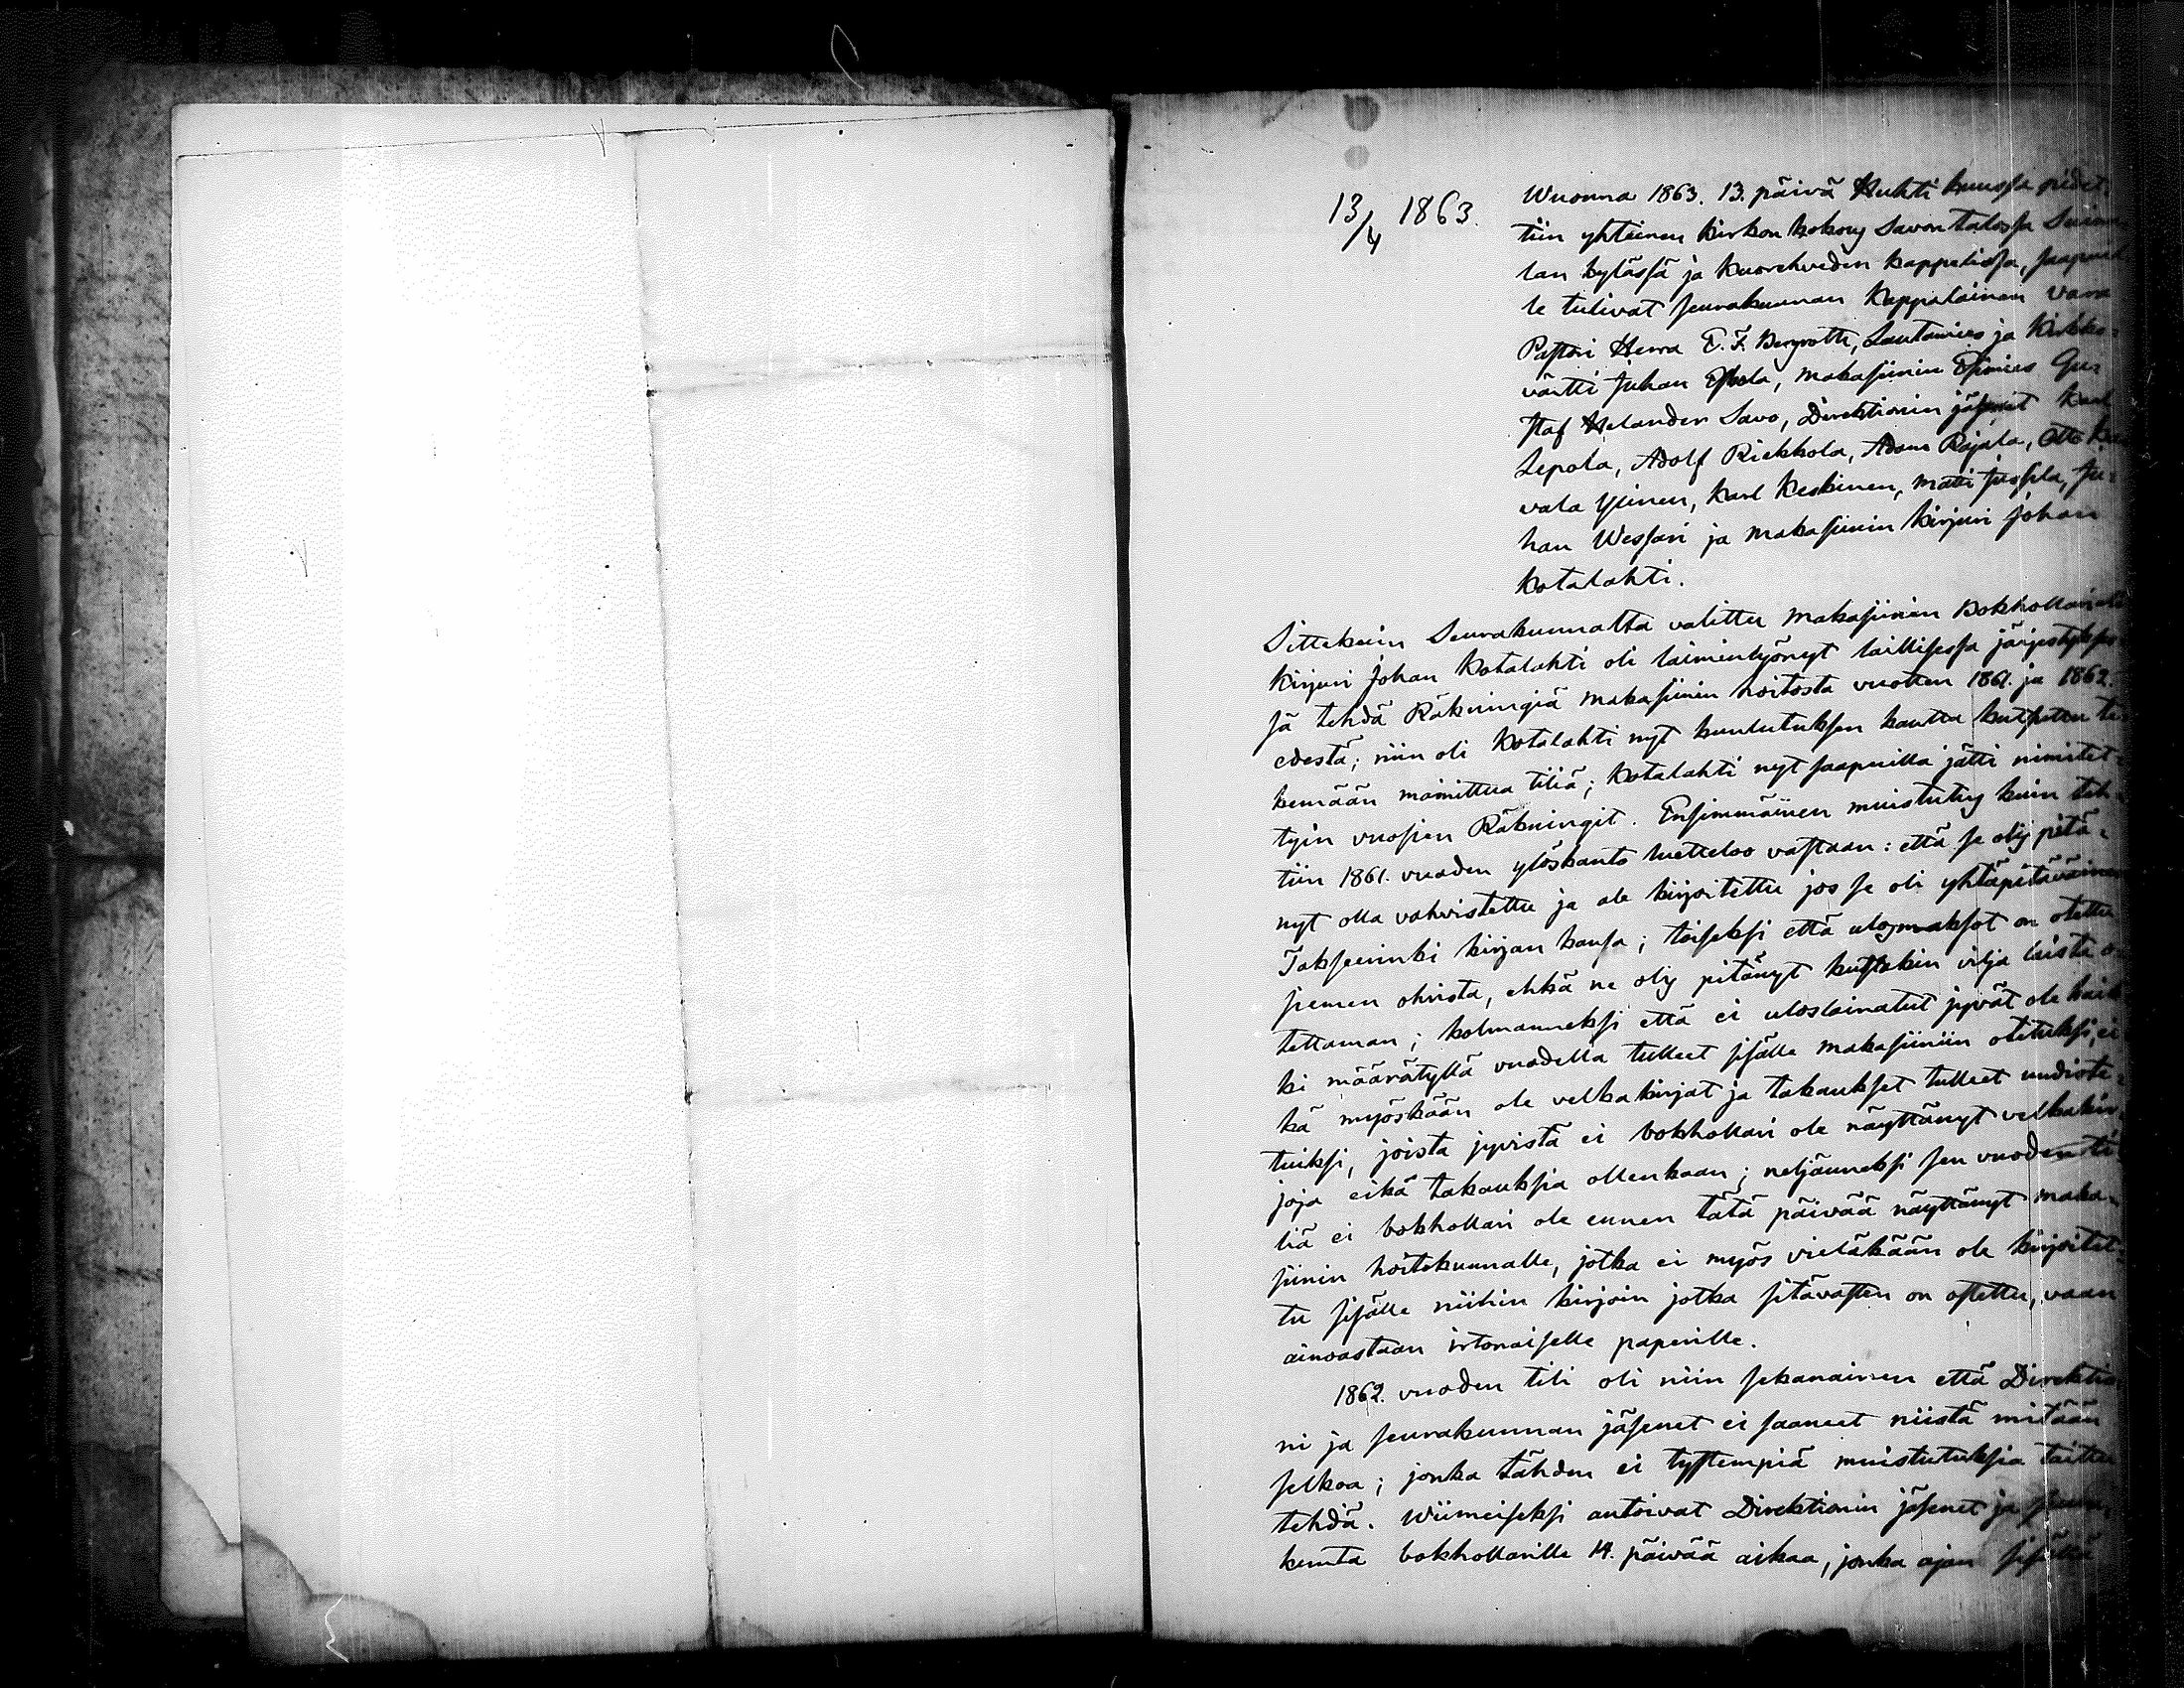 13/4 1863.
Wuonna 1863. 13. päivä Huhti kuussa pidet-
tiin yhteinen kirkon kokous Savon talossa Suinu
lan kylässä ja Kuorehveden kappelissa, saapuvil
le tulivat seurakunnan Kappalainen Vara
Pastori Herra E. F. Bergroth, Lautamies ja Kirkko-
värtti Juhan Eskola, makasiinin Esimies Gu-
staf Helander Savo, Direktionin jäsenet Karl
Lepola, Adolf Riekkola, Adam Rajala, Otto
vala Yiinen, Karl Keskinen, Matti Jussila, Ju-
han Wessari ja makasiinin kirjuri Johan
Kotalahti.
Sittekuin Seurakunnalta valittu Makasiinin Bokhollari eli
Kirjuri Johan Kotalahti oli laiminlyönyt laillisessa järjestykses-
sä tehdä Räkningiä makasiinin hoitosta vuotten 1861. ja 1862.
edestä; niin oli Kotalahti nyt kuulutuksen kautta kutsuttu te-
kemään mainittua tiliä; Kotalahti nyt saapuilla jätti nimitet-
tyin vuosien Räkningit. Ensimmäinen muistutus kuin teh-
tiin 1861. vuoden ylöskanto luetteloo vastaan: että se olis pitä-
nyt olla vahvistettu ja ale kirjoitettu jos se oli yhtäpitäväinen
Takseerinki kirjan kansa; toiseksi että ulosmaksot on otettu
siemen ohrista, ehkä ne olis pitänyt kustakin vilja laista o-
tettaman; kolmanneksi että ei uloslainatut jyvät ole kaik-
ki määrätyllä vuodella tulleet sisälle makasiiniin otetuksi, ei-
kä myöskään ole velkakirjat ja takaukset tulleet uudiste-
tuiksi, joista jyvistä ei bokhollari ole näyttänyt velkakir-
joja eikä takauksia ollenkaan; neljänneksi sen vuoden ti-
liä ei bokhollari ole ennen tätä päivää näyttänyt maka-
siinin hoitokunnalle, jotka ei myös vieläkään ole kirjoitet-
tu sisälle niihin kirjoin jotka sitävasten on ostettu, vaan
ainoastaan irtonaiselle paperille.
1862. vuoden tili oli niin sekanainen että Direktio-
ni ja seurakunnan jäsenet ei saaneet niistä mitään
selkoa; jonka tähden ei tyystempiä muistutuksia taittu
tehdä. Wiimeiseksi antoivat Direktionin jäsenet ja seura-
kunta bokhollarille 14. päivää aikaa, jonka ajan sisällä